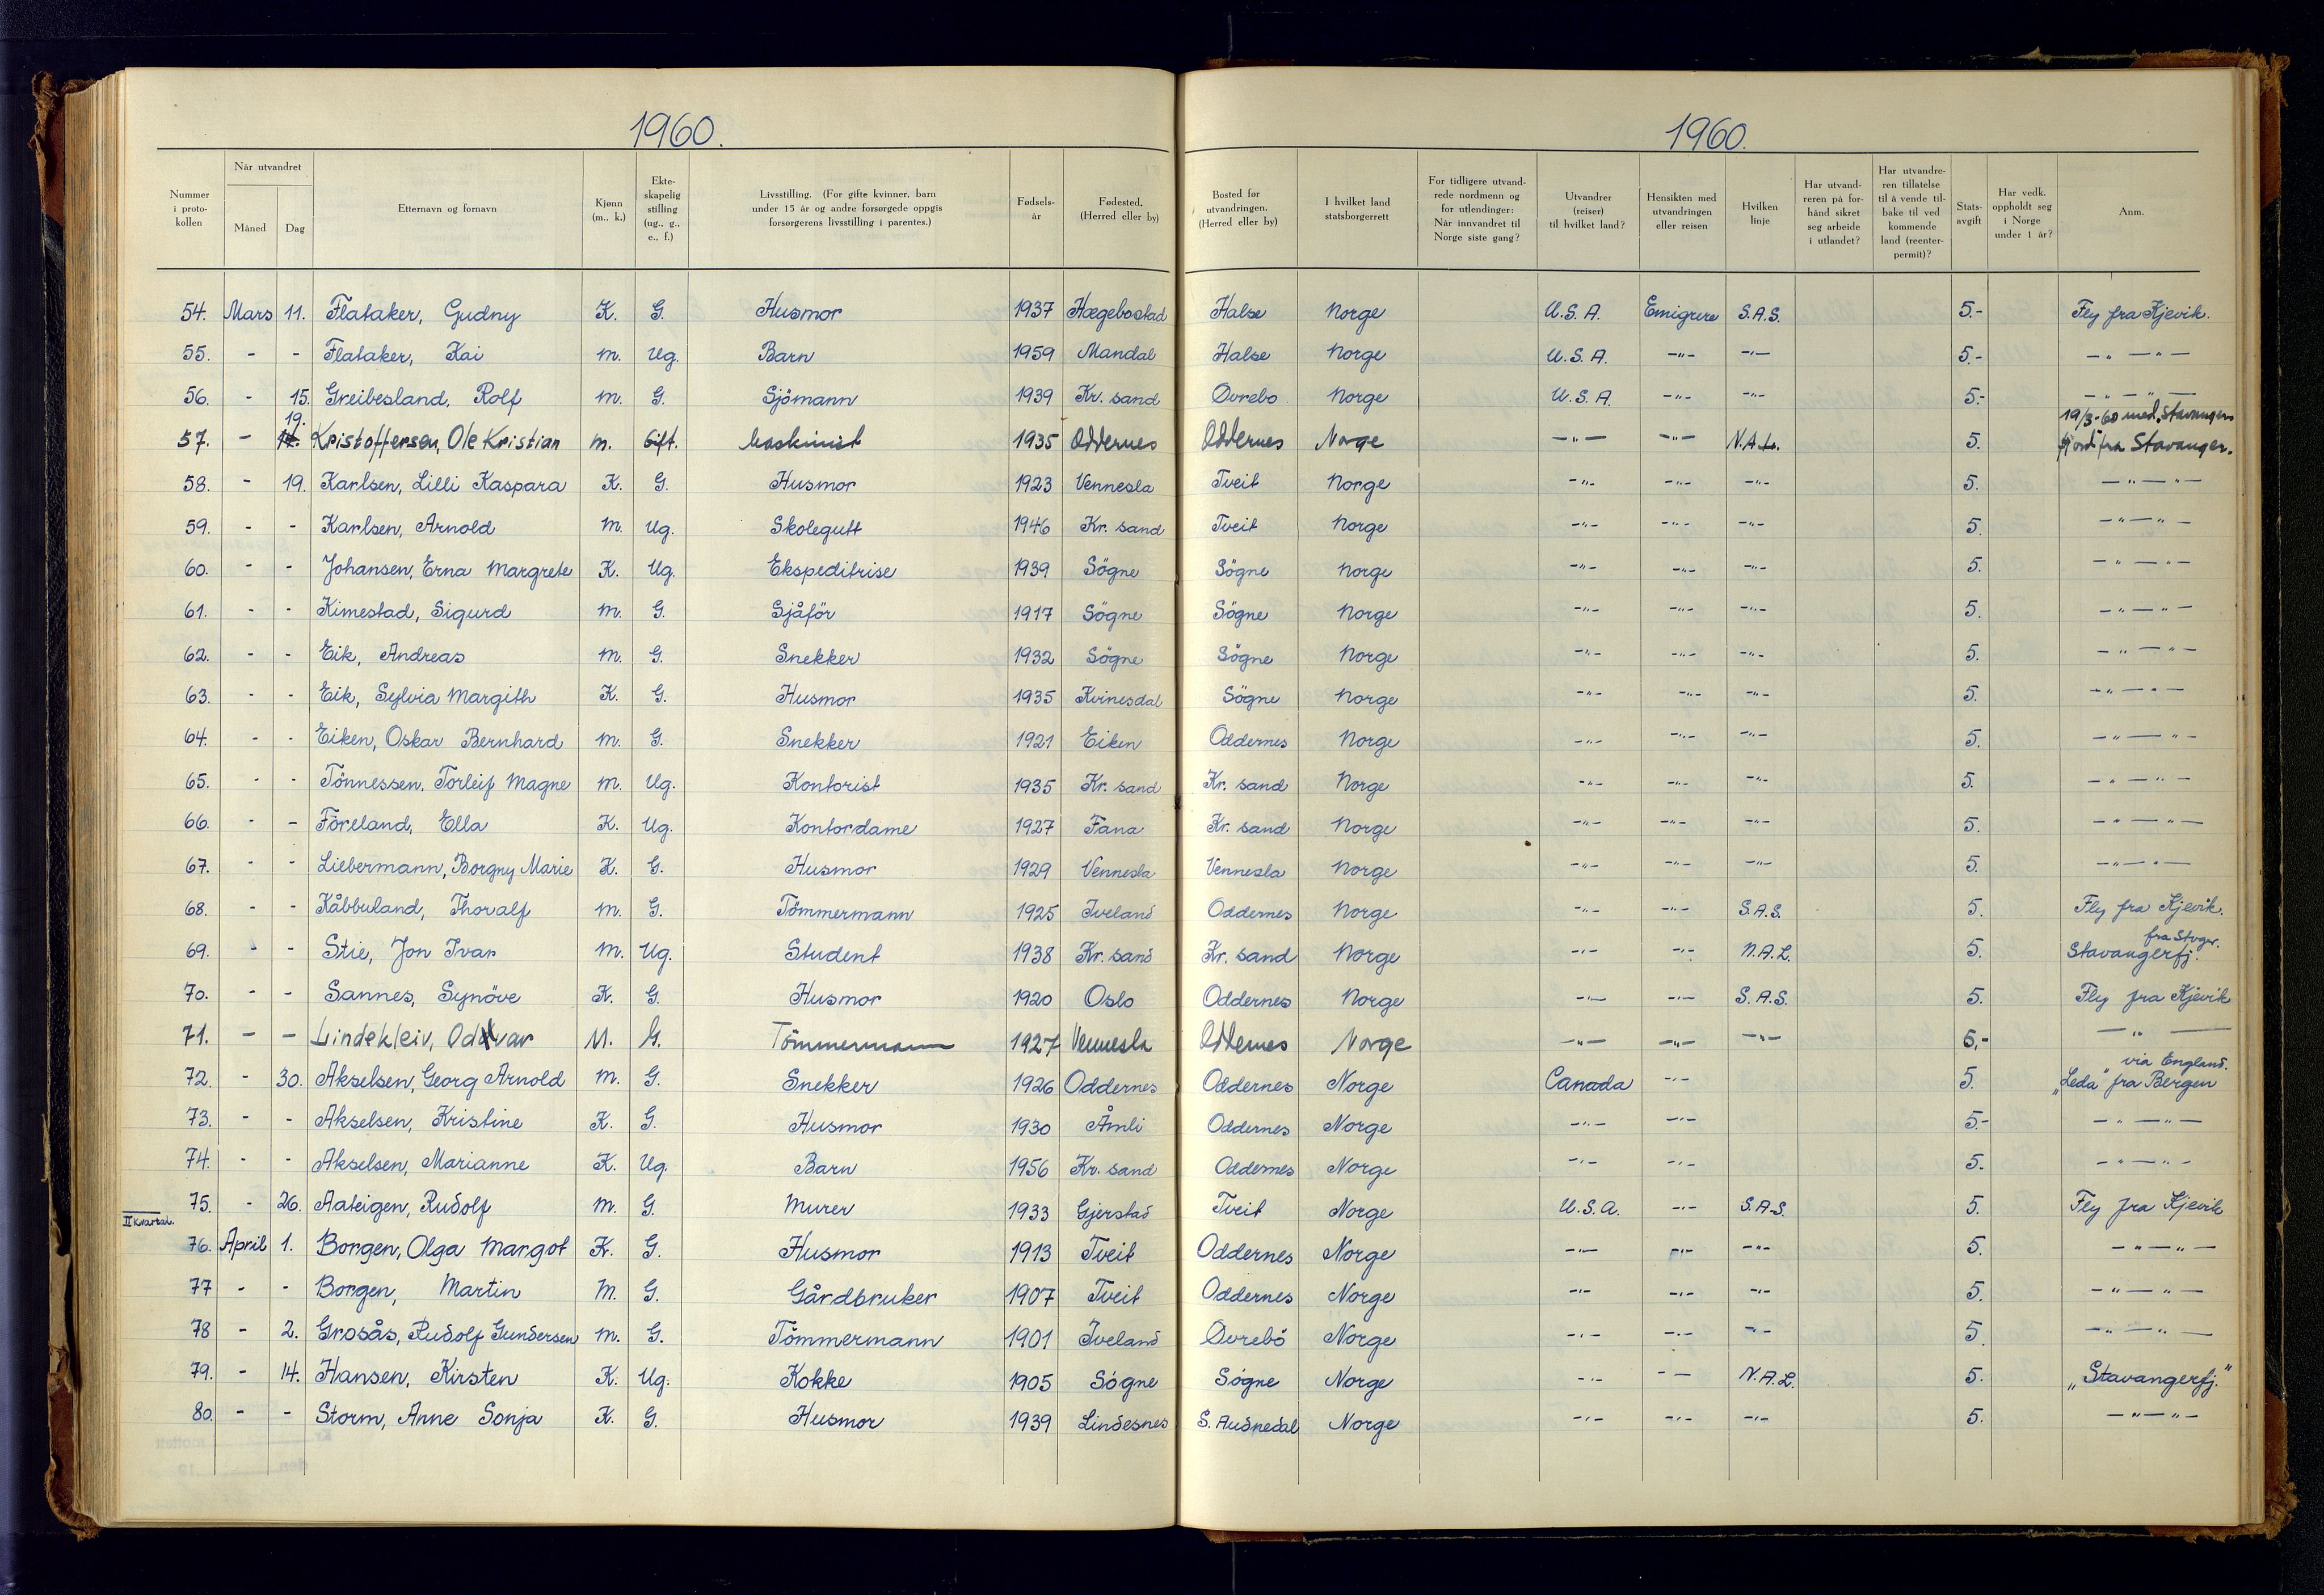 1960.
1960.
Nummer i proto-kollen | Når utvandret | Måned | Dag | Etternavn og fornavn | Kjønn (m., k.) | Ekte-skapelig stilling (ug., g., e., f.) | Livsstilling. (For gifte kvinner, barn under 15 år og andre forsørgede oppgis forsørgerens livsstilling i parentes.) | Fødsels-år | Fødested. (Herred eller by) | Bosted før utvandringen. (Herred eller by) | I hvilket land statsborgerrett | For tidligere utvand-rede nordmenn og for utlendinger: Når innvandret til Norge siste gang? | Utvandrer (reiser) til hvilket land? | Hensikten med utvandringen eller reisen | Hvilken linje | Har utvand-reren på for-hånd sikret seg arbeide i utlandet? | Har utvandre-ren tillatelse til å vende til-bake til ved kommende land (reenter-permit)? | Stats-avgift | Har vedk. oppholdt seg i Norge under 1 år? | Anm.
54. Mars 11. Flataker, Gudny K. G. Husmor 1937 Hægebostad Halse Norge U.S.A. Emigrere S.A.S. 5.- Fly fra Kjevik.
55. - - Flataker, Kai m. Ug. Barn 1959 Mandal Halse Norge U.S.A. -"- -"- 5.- -"- -"-
56. - 15. Greibesland, Rolf m. G. Sjömann 1939 Kr. sand Øvrebo Norge U.S.A. -"- -"- 5.- -"- -"-
19. 19/3-60 med "Stavanger
57. - Kristoffersen, Ole Kristian m. Gift. Maskinist 1935 Oddernes Oddernes Norge -"- -"- N.A.L. 5. fjord" fra Stavanger.
58. - 19. Karlsen, Lilli Kaspara K. G. Husmor 1923 Vennesla Tveit Norge -"- -"- -"- 5. -"- -"-
59. - - Karlsen, Arnold m. Ug. Skolegutt 1946 Kr. sand Tveit Norge -"- -"- -"- 5. -"- -"-
60. - - Johansen, Erna Margrete K. Ug. Ekspeditrise 1939 Sögne Sögne Norge -"- -"- -"- 5. -"- -"-
61. - - Kimestad, Sigurd m. G. Sjåför 1917 Sögne Sögne Norge -"- -"- -"- 5. -"- -"-
62. - - Eik, Andreas m. G. Snekker 1932 Sögne Sögne Norge -"- -"- -"- 5. -"- -"-
63. - - Eik, Sylvia Margith K. G. Husmor 1935 Kvinesdal Sögne Norge -"- -"- -"- 5. -"- -"-
64. - - Eiken, Oskar Bernhard m. G. Snekker 1921 Eiken Oddernes Norge -"- -"- -"- 5. -"- -"-
65. - - Tönnessen, Torleif Magne m. Ug. Kontorist 1935 Kr. sand Kr. sand Norge -"- -"- -"- 5. -"- -"-
66. - - Föreland, Ella K. Ug. Kontordame 1927 Fana Kr. sand Norge -"- -"- -"- 5. -"- -"-
67. - - Liebermann, Borgny Marie K. G. Husmor 1929 Vennesla Vennesla Norge -"- -"- -"- 5. -"- -"-
68. - - Kåbbuland, Thoralf m. G. Tömmermann 1925 Iveland Oddernes Norge -"- -"- S.A.S. 5. Fly fra Kjevik.
fra Stvgr.
69. - - Stie, Jon Ivar m. Ug. Student 1938 Kr. sand Kr. sand Norge -"- -"- N.A.L. 5. Stavangerfj.
70. - - Sannes, Synöve K. G. Husmor 1920 Oslo Oddernes Norge -"- -"- S.A.S. 5. Fly fra Kjevik
71. - - Lindekleiv, Oddvar M. G. Tömmermann 1927 Vennesla Oddernes Norge -"- -"- -"- 5,- -"-
via England.
72. - 30. Akselsen, Georg Arnold m. G. Snekker 1926 Oddernes Oddernes Norge Canada -"- 5. "Leda" fra Bergen
73. - - Akselsen, Kristine K. G. Husmor 1930 Åmli Oddernes Norge -"- -"- 5.- -"- -"-
74. - - Akselsen, Marianne K. Ug. Barn 1956 Kr. sand Oddernes Norge -"- -"- 5. -"- -"-
75. - 26. Aateigen, Rudolf m. G. Murer 1933 Gjerstad Tveit Norge U.S.A. -"- S.A.S. 5. Fly fra Kjevik
II kvartal.
76. April 1. Borgen, Olga Margot K. G. Husmor 1913 Tveit Oddernes Norge -"- -"- -"- 5. -"- -"-
77 - - Borgen, Martin M. G. Gårdbruker 1907 Tveit Oddernes Norge -"- -"- -"- 5. -"- -"-
78 - 2. Grosås, Rudolf Gundersen m. G. Tömmermann 1901 Iveland Øvrebö Norge -"- -"- -"- 5. -"- -"-
79. - 14. Hansen, Kirsten K. Ug. Kokke 1905 Sögne Sögne Norge -"- -"- N.A.L. 5. "Stavangerfj."
80. - - Storm, Anne Sonja K. G. Husmor 1939 Lindesnes S. Audnedal Norge -"- -"- -"- 5. -"- -"-